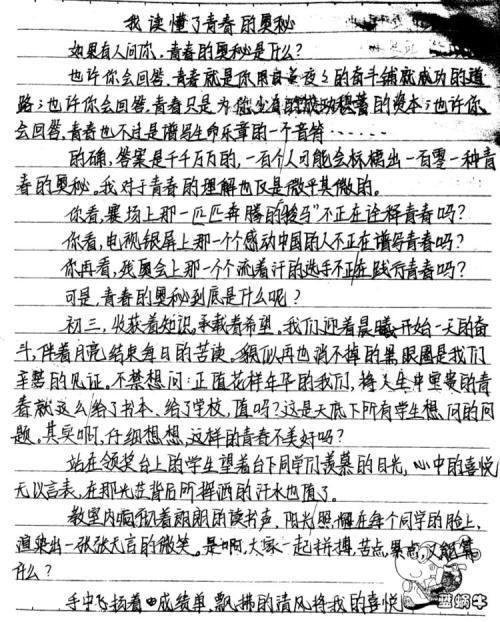 我读懂了青春的奥秘
如果有人问你，青春的奥秘是什么？
也许你会回答，青春就是你用白天黑夜的奋斗铺就成功的道
路；也许你会回答，青春只是为能的资本；也许你
会回答，青春也不过是谱写生命乐章的一个音符······
的确，答案是千千万万的，一百个人可能会标榜出一百零一种青
春的奥秘。我对于青春的理解也仅是微乎其微的。
你看，赛场上那一匹匹奔腾的"骏马"不正在诠释青春吗？
你看，电视银屏上那一个个感动中国的人不正在谱写青春吗？
你再看，残奥会上那一个个流着汗的选手不正在践行青春吗？
可是，青春的奥秘到底是什么呢？
初三，收获着知识，承载着希望。我们迎着晨曦开始一天的奋
斗，伴着月亮结束每日的苦读。貌似再也消不掉的黑眼圈是我们
辛勤的见证。不禁想问：正值花样年华的我们，将人生中宝贵的青
春就这么给了书本、给了学校，值吗？这是天底下所有学生想问的问
题。其实啊，仔细想想，这样的青春不美好吗？
站在领奖台上的学生望着台下同学们羡慕的目光，心中的喜悦
无以言表，在那光芒背后所挥洒的汗水也值了。
教室内飘扬着朗朗的读书声，阳光照耀在每个同学的脸上，
渲染出一张张无言的微笑。是啊，大家一起拼搏，苦点，累点，又能算
什么？
手中飞扬着成绩单，飘拂的清风将我的喜悦
蓝蜗牛